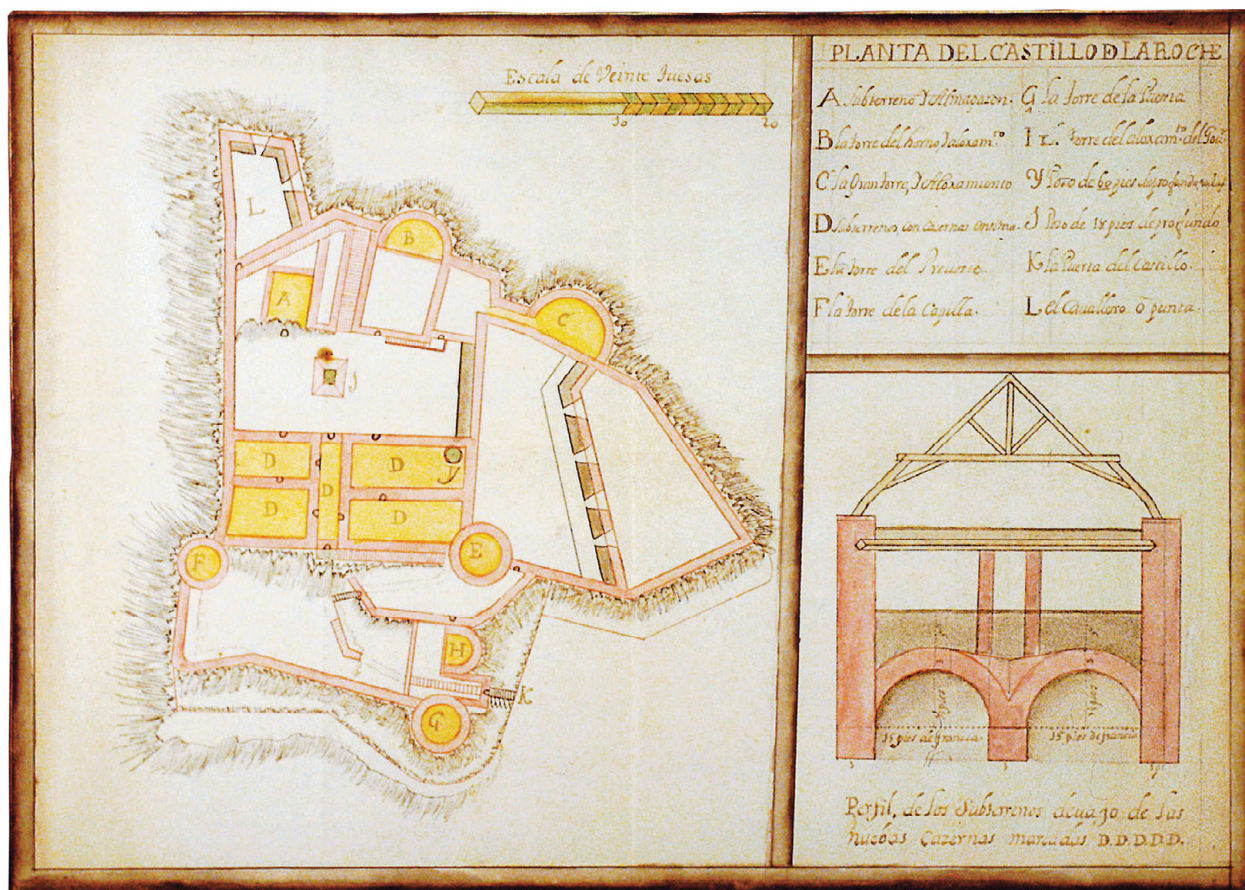 Escala de Veinte Tuesas
10 20
PLANTA DEL CASTILLO D LAROCHE
A Subterreno y Almagazen.
B la torre del horno y aloxam.to
C la Gran torre, y Alloxamiento
D Subterreno, con Cazernas encima.
E la torre del Prevoste.
F la torre de la Capilla.
G la torre de la Puerta
I torre del aloxam.to del
Y Pozo de 60 pies de
J Pozo de 18 pies de profundo
K la Puerta del Castillo.
L el Cavallero o punta.
L
B
A
C
J
D D Y
D
D D
F
E
H
K
G
15 pies de 15 pies de
Perfil, de los Subterrenos devajo de las
nuebas Cazernas marcadas D.D.D.D.D.